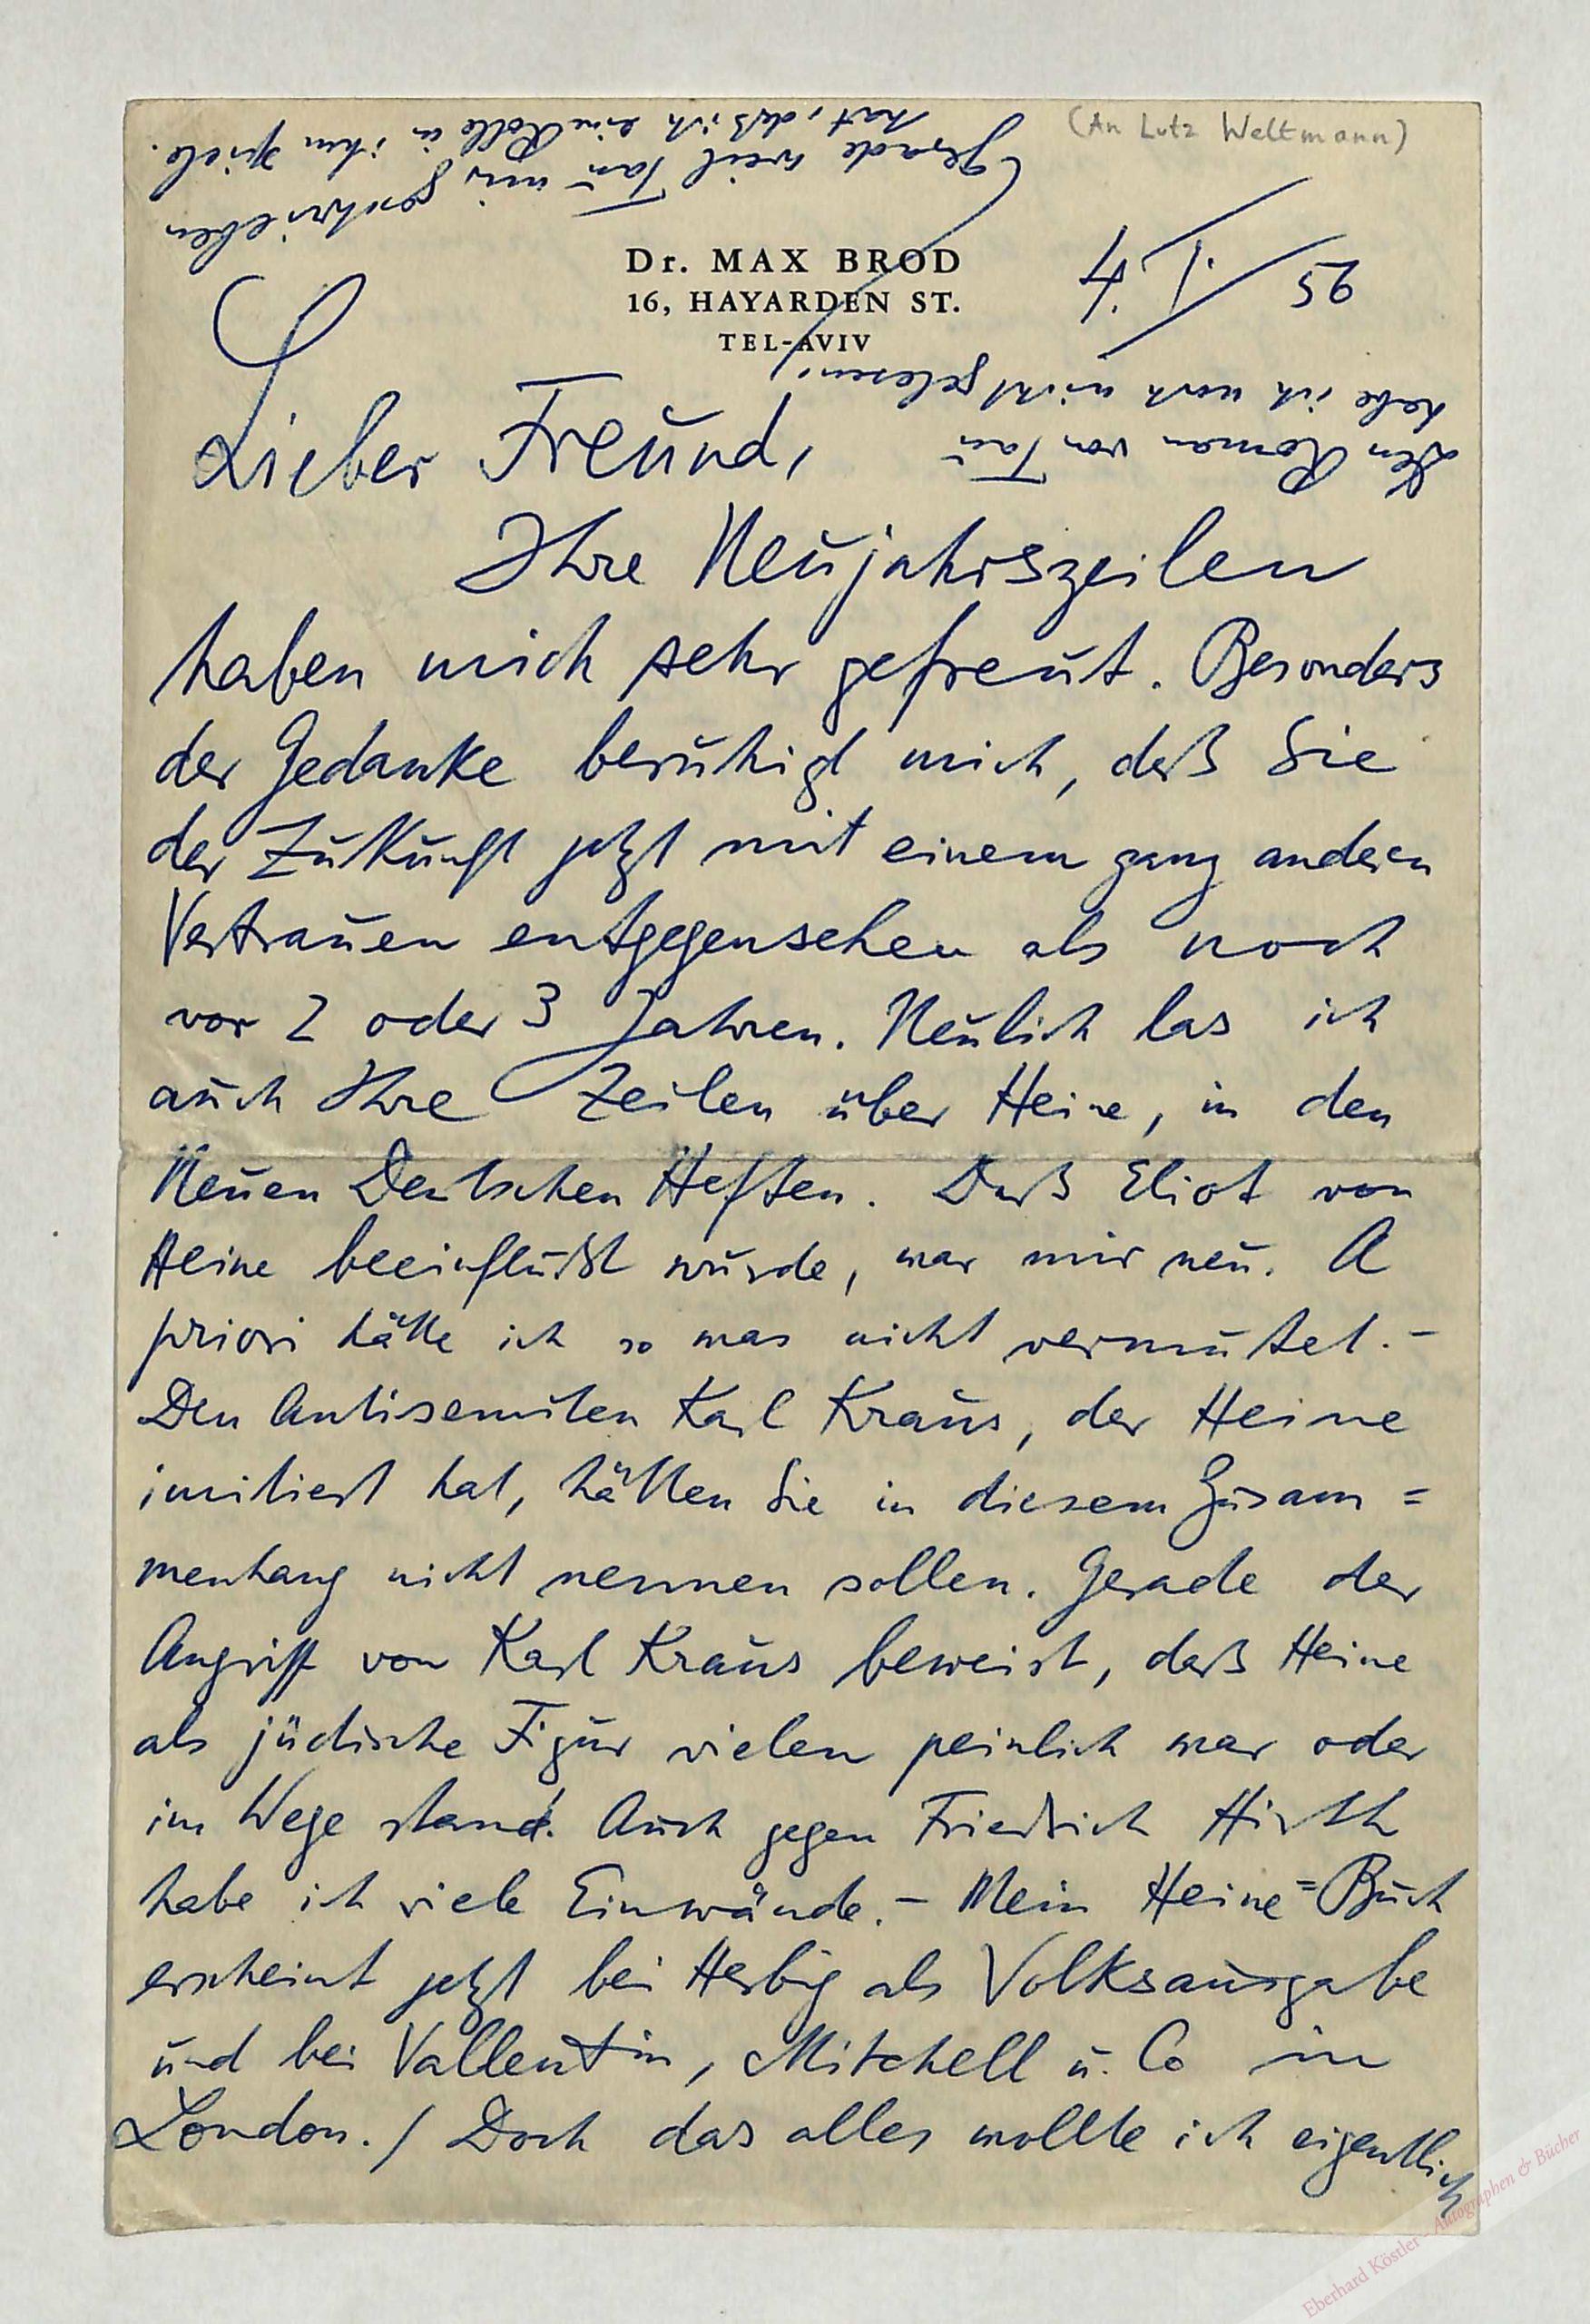 (An Lutz Weltmann)
Dr. MAX BROD
16, HAYARDEN ST.
TEL-AVIV
4. I. 56
Lieber Freund,
Ihre Neujahrszeilen
haben mich sehr gefreut. Besonders
der Gedanke beruhigt mich, daß Sie
der Zukunft jetzt mit einem ganz andern
Vertrauen entgegensehen als noch
vor 2 oder 3 Jahren. Neulich las ich
auch Ihre Zeilen über Heine, in den
Neuen Deutschen Heften. Daß Eliot von
Heine beeinflußt wurde, war mir neu. A
priori hätte ich so was nicht vermutet. –
Den Antisemiten Karl Kraus, der Heine
imitiert hat, hätten Sie in diesem Zusam=
menhang nicht nennen sollen. Gerade der
Angriff von Karl Kraus beweist, daß Heine
als jüdische Figur vielen peinlich war oder
im Wege stand. Auch gegen Friedrich Hirth
habe ich viele Einwände. – Mein Heine=Buch
erscheint jetzt bei Herbig als Volksausgabe
und bei Vallentin, Mitchell u. Co in
London. / Doch das alles wollte ich eigentlich
Den Roman von Tau
habe ich noch nicht gelesen,
Gerade weil Tau mir geschrieben
hat, daß ich eine Rolle in ihm spiele.
Eberhard Köstler - Autographen & Bücher